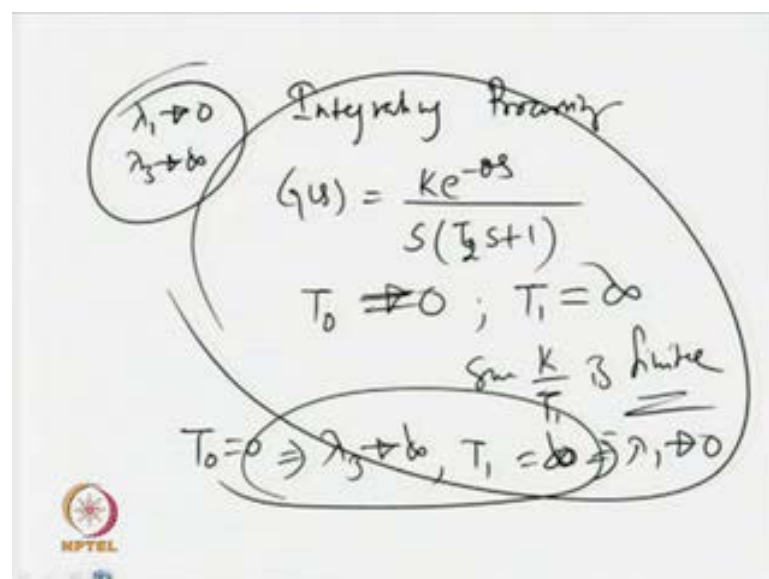 λ₁→0
λ₃→∞
Integrating Processing
G(s) = Ke^{-θs} / S(T₂s+1)
T₀ ⇒ 0 ; T₁ = ∞
K/T₁ is finite
T₀=0 ⇒ λ₃→∞, T₁ = ∞ ⇒ λ₁→0
NPTEL